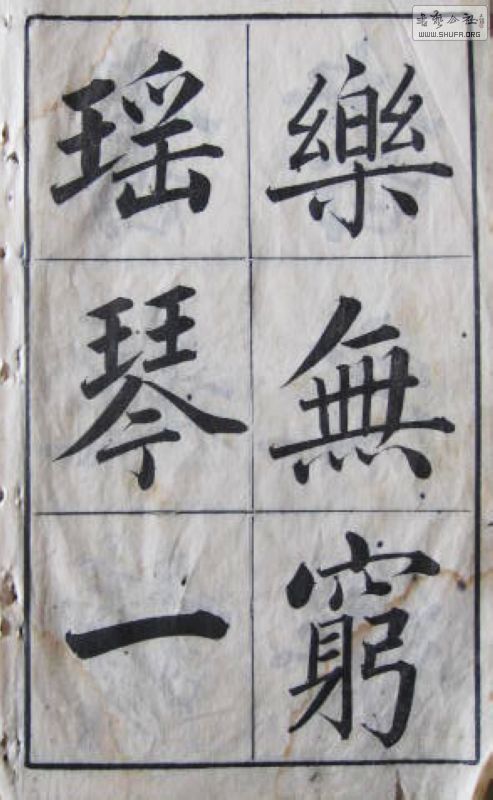 樂無窮
瑶琴一
WWW.SHUFA.ORG